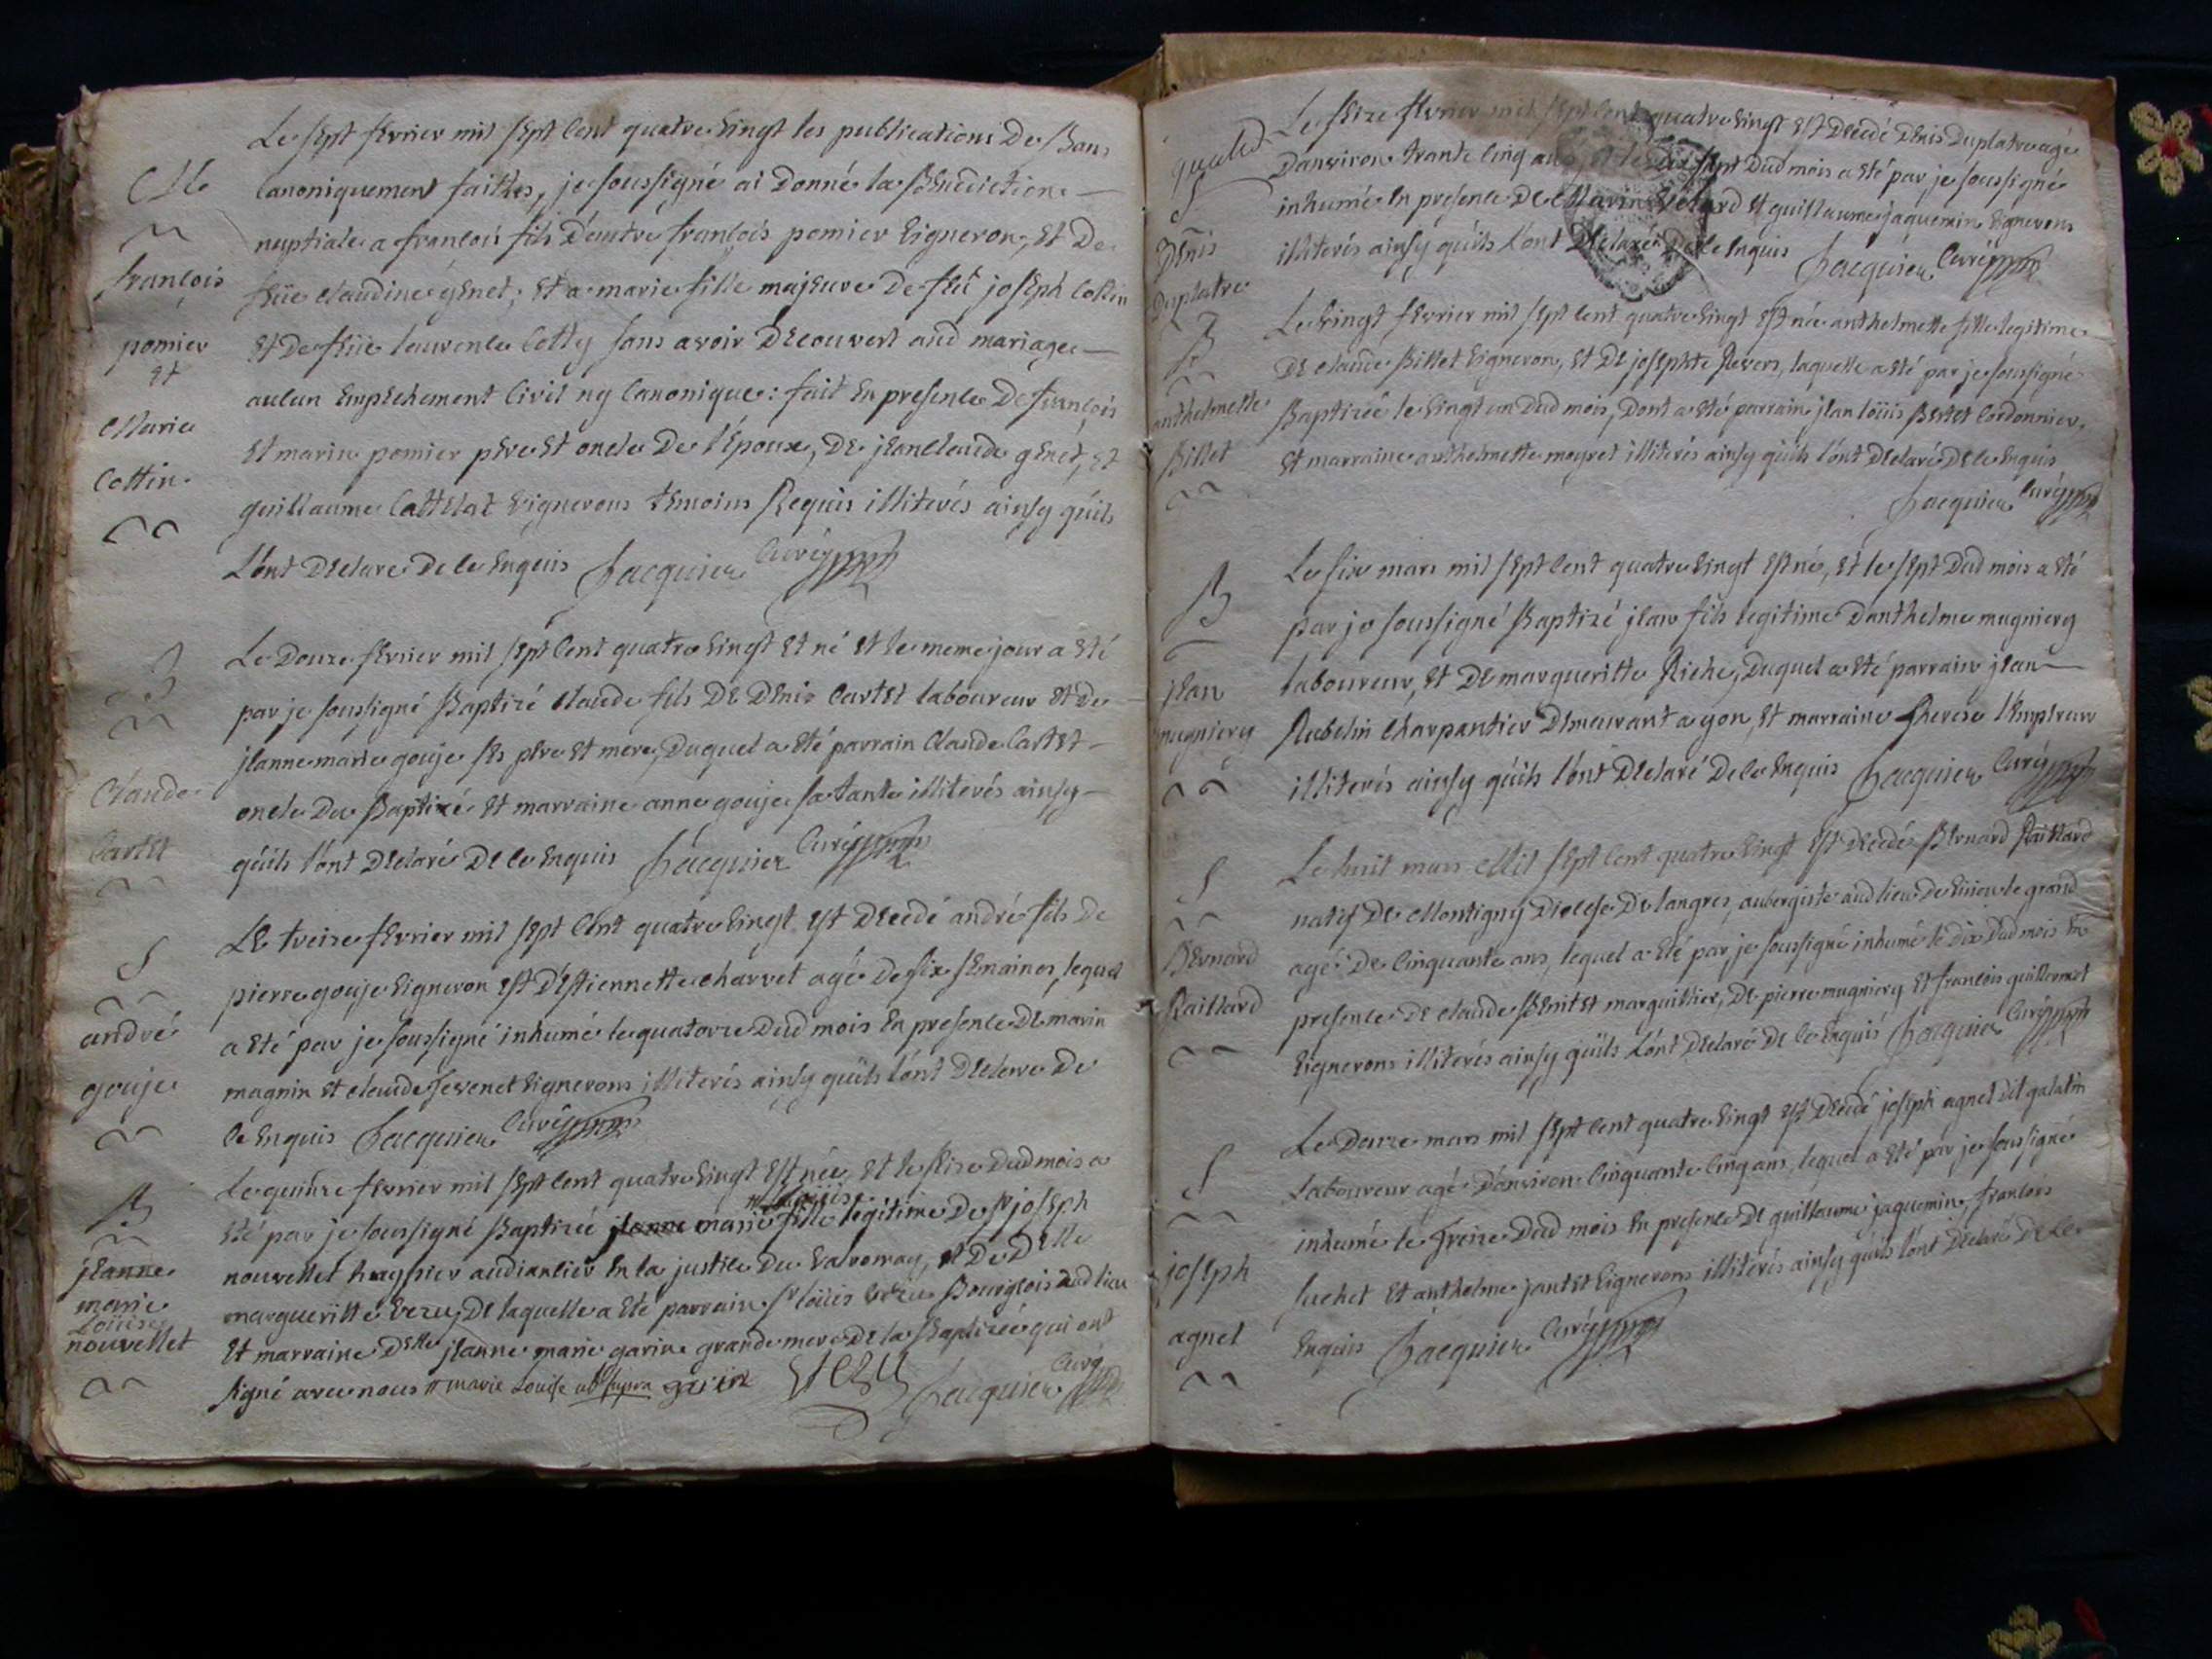 Le sept fevrier mil sept cent quatre vingt les publications de Bans
M
canoniquement faittes, je soussigné ai donné la Benediction
nuptiale a françois fils d'autre françois pomier vigneron, et de
françois
feüe claudine génet; et a marie fille majeure de feü joseph Cottin
pomier
et
et de feüe laurence Cotty sans avoir decouvert aud mariage
aucun empechement civil ny canonique: fait en presence de françois
Marie
et marin pomier pere et oncle de l'epoux, de jean claude genet, et
Cottin
guillaume Cattelat vignerons temoins Requis illiterés ainsy qu'ils
l'ont declare de ce enquis Jacquier Curé
B
Le douze fevrier mil sept cent quatre vingt et né et le meme jour a eté
par je soussigné Baptizé claude fils de denis Cartet laboureur et de
jeanne marie gouje ses pere et mere, duquel a eté parrain Claude Cartet
Claude
oncle du Baptizé et marraine anne gouje sa tante illiterés ainsy
Cartet
qu'ils l'ont declaré de ce enquis Jacquier Curé
S
Le treize fevrier mil sept cent quatre vingt est decedé andré fils de
pierre gouje vigneron est d'estiennette charvet agé de six semaines, lequel
andré
a eté par je soussigné inhumé le quatorze dud mois en presence de marin
gouje
magnin et claude fevenet vignerons illiterés ainsy qu'ils l'ont declare de
ce enquis Jacquier Curé
B
Le quinze fevrier mil sept cent quatre vingt est née et le seize dud mois a
Loüise
eté par je soussigné Baptizée jeanne marie fille legitime de Sr joseph
jeanne
nouvellet huyssier audiancier en la justice du valromay, et de Delle
marie
margueritte vezu, de laquelle a eté parrain Sr loüis vezu Bourgeois aud lieu
Loüise
nouvellet
et marraine Delle jeanne marie garin grande mere de la Baptizée qui ont
signé avec nous marie Louise ut supra garin Vezu Jacquier Curé
Le seize fevrier mil sept cent quatre vingt est decedé denis duplatre agé
S
d'anviron trante cinq ans, et le dix sept dud mois a eté par je soussigné
inhumé en presence de Marin et guillaume jaquemin vignerons
Denis
illiterés ainsy qu'ils l'ont declaré de ce enquis Jacquier Curé
duplatre
B
Le vingt fevrier mil sept cent quatre vingt est née anthelmette fille legitime
de claude Billet vigneron, et de josephte Revers, laquelle a eté par je soussigné
anthelmette
Baptizée le vingt un dud mois, dont a eté parrain jean loüis Bertet Cordonnier,
Billet
et marraine anthelmette meyret illiterés ainsy qu'ils l'ont declaré de ce enquis
Jacquier Curé
B
Le six mars mil sept cent quatre vingt est né, et le sept dud mois a eté
par je soussigné Baptizé jean fils legitime d'anthelme mugniery
jean
laboureur, et de margueritte Riche, duquel a eté parrain jean
mugniery
Rubelin charpantier demeurant a yon, et marraine therese l'empereur
illiterés ainsy qu'ils l'ont declaré de ce enquis Jacquier Curé
S
Le huit mars Mil sept cent quatre vingt est decedé Bernard Raillard
natif de Montigny diocese de langres, aubergiste aud lieu de virieu le grand
Bernard
agé de cinquante ans, lequel a eté par je soussigné inhumé le dix dud mois en
Raillard
presence de claude Benitet marguillier, de pierre mugniery et françois guillermet
vignerons illiterés ainsy qu'ils l'ont declaré de ce enquis Jacquier Curé
S
Le douze mars mil sept cent quatre vingt est decedé joseph agnet dit galatin
Laboureur agé d'anviron cinquante cinq ans, lequel a eté par je soussigné
joseph
inhumé le treize dud mois en presence de guillaume jaquemin, françois
luchet et anthelme jantet vignerons illiterés ainsy qu'ils l'ont declaré de ce
agnet
enquis Jacquier Curé